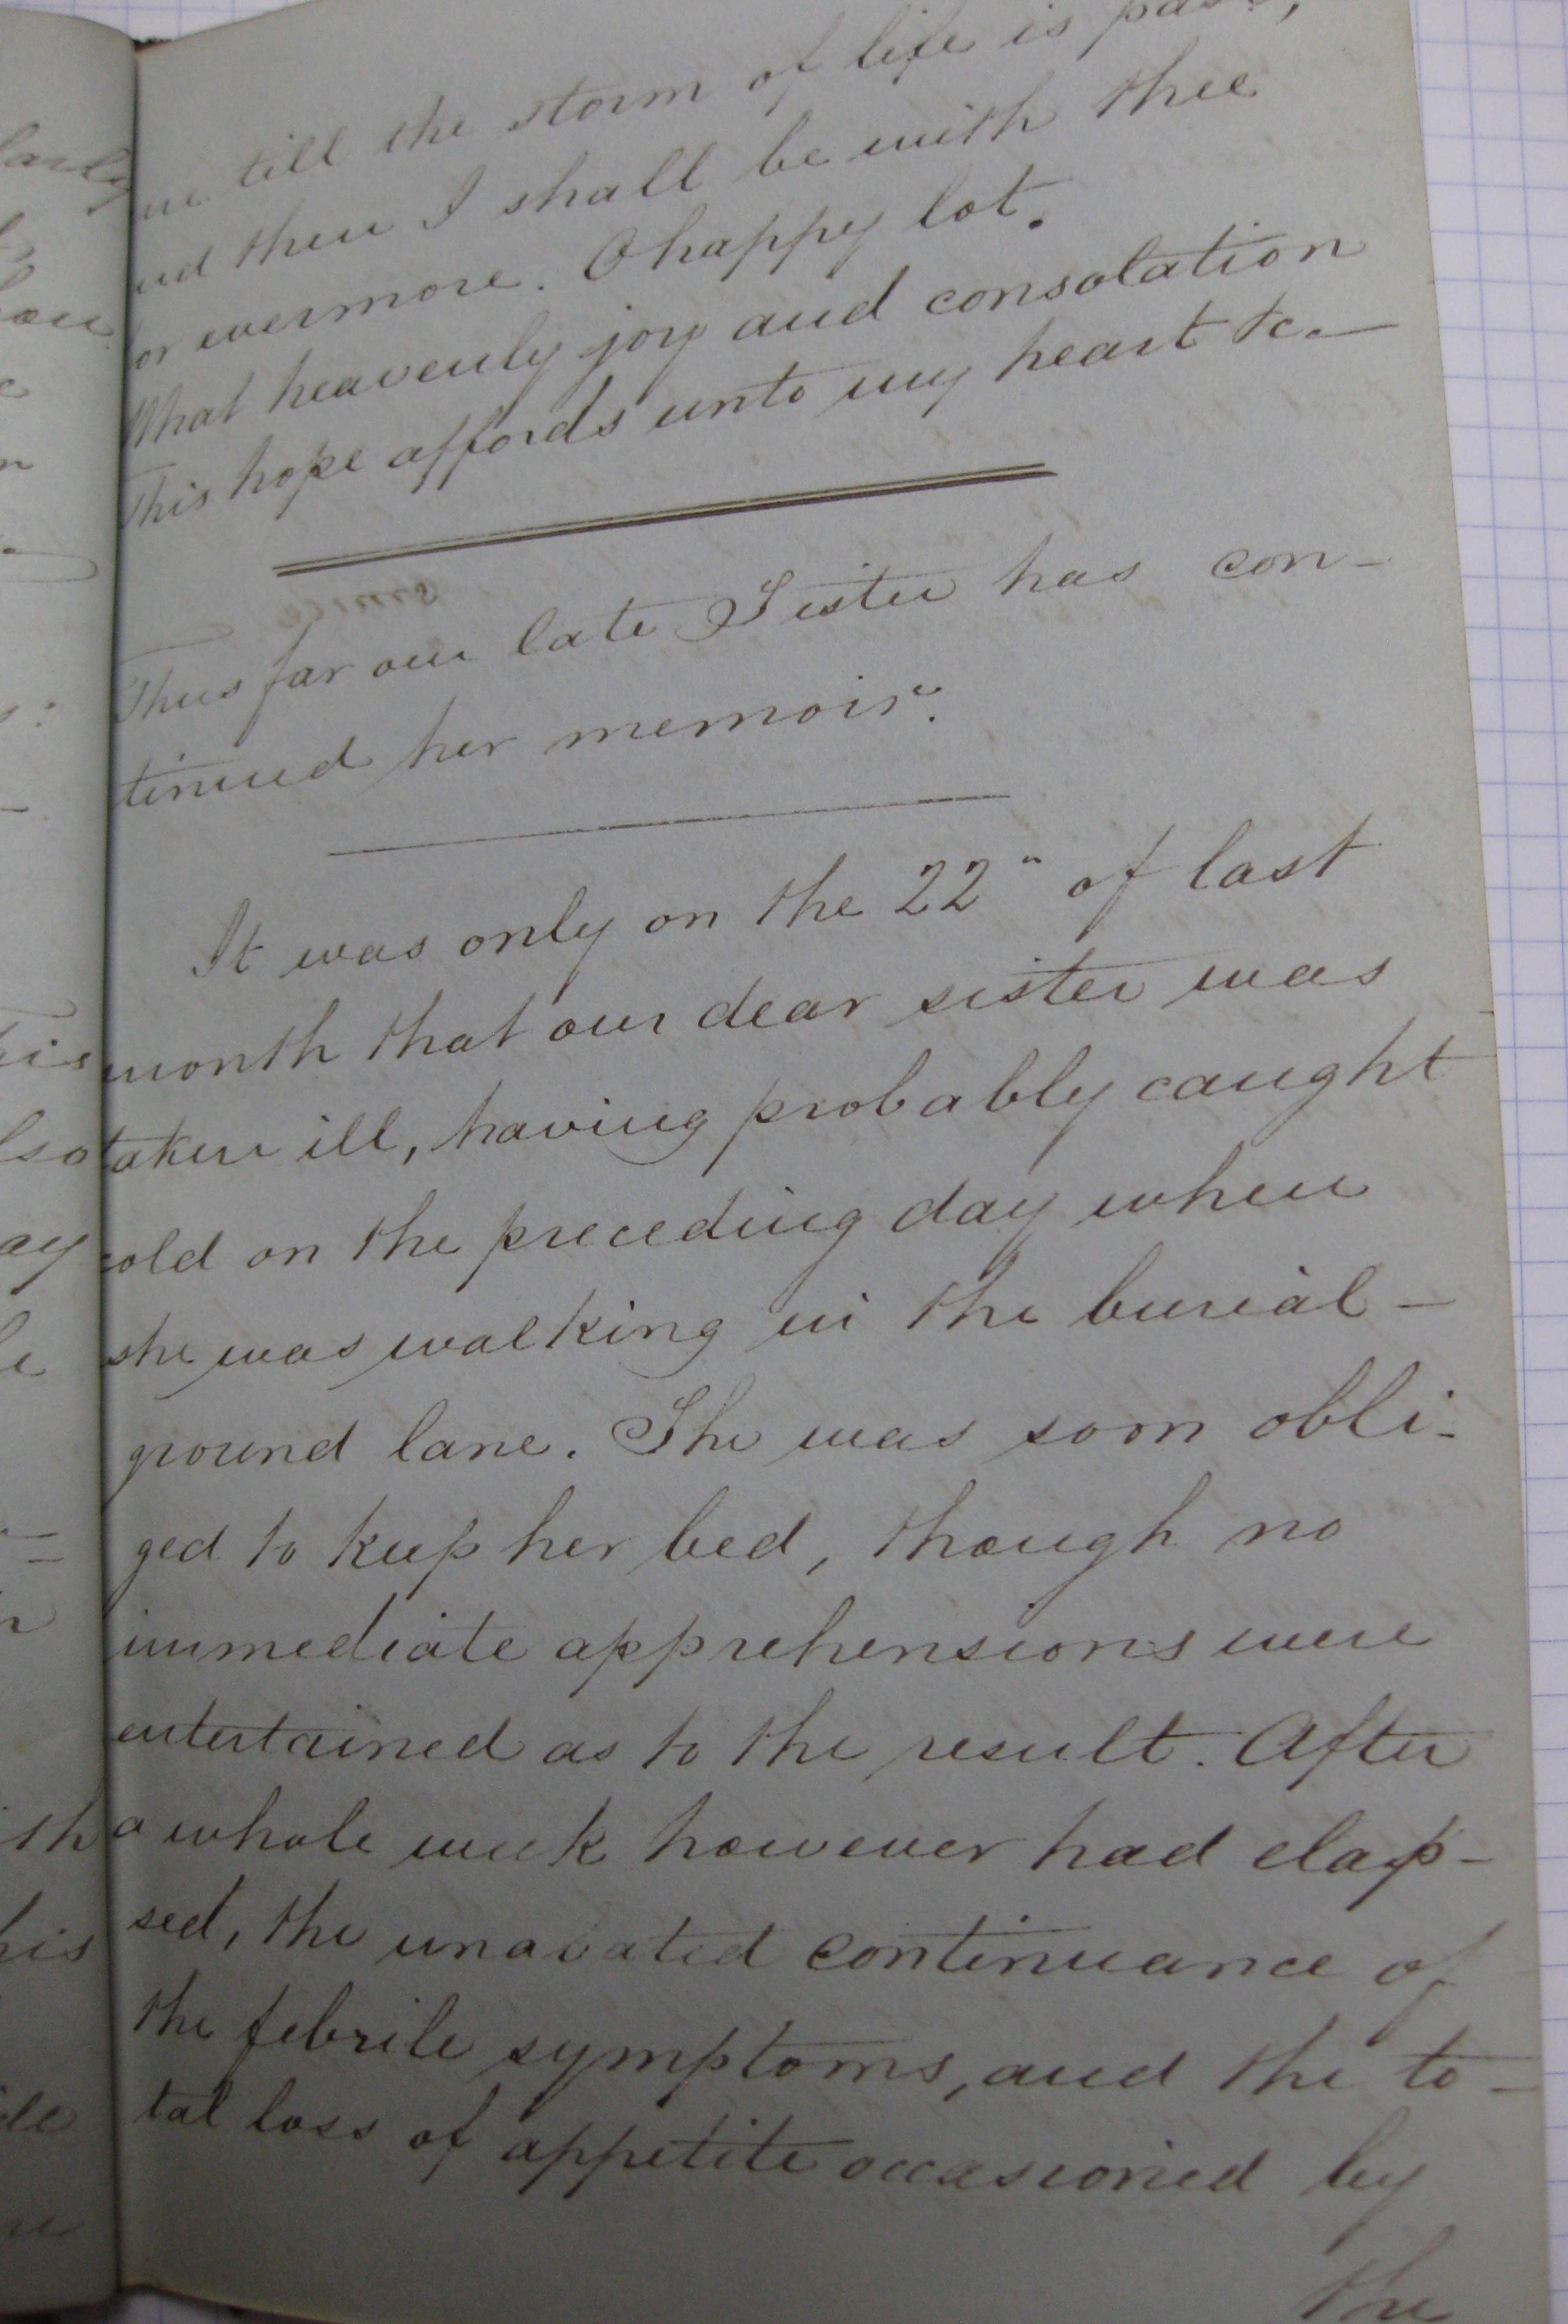 me till the storm of life is past,
and then I shall be with thee
for evermore. O happy lot.
What heavenly joy and consolation
This hope affords unto my heart &c.—
Thus far our late Sister has con-
tinued her memoir.
It was only on the 22" of last
month that our dear sister was
taken ill, having probably caught
cold on the preceding day when
she was walking in the burial-
ground lane. She was soon obli-
ged to keep her bed, though no
immediate apprehensions were
entertained as to the result. After
a whole week however had elap-
sed, the unabated continuance of
the febrile symptoms, and the to-
tal loss of appetite occasioned by
the